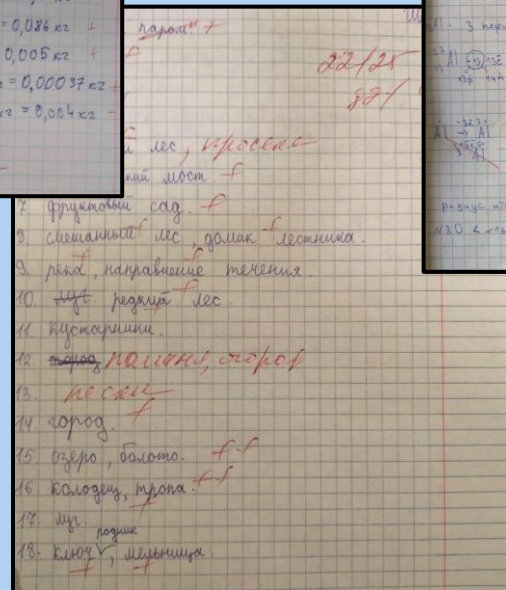 = 0,086 кг +
0,005 кг +
= 0,00037 кг +
кг = 0,004 кг
паром" +
22/25
й лес, просека
кий мост +
7. фруктовый сад. +
8. смешанный лес, домик лестника.
9. река, направление течения.
10. луг. редкий лес.
11. кустарники.
12. город
13. пески
14. город.
15. озеро, болото. ++
16. колодец, тропа. ++
17. луг.
родник
18. ключ V, мельница.
Al - 3 пери
Al
Al → Al
радиус